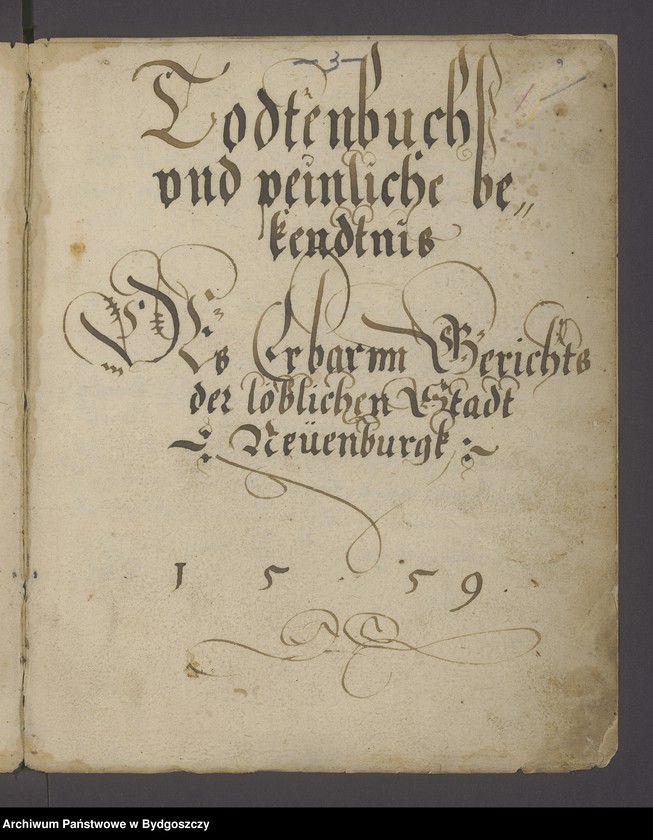 - 3 -
Todtenbuch
vnd peinliche be„
kendtnis
Des Erbarnn Gerichts
der löblichen Stadt
Neüenburgk
1 5 5 9
Archiwum Państwowe w Bydgoszczy